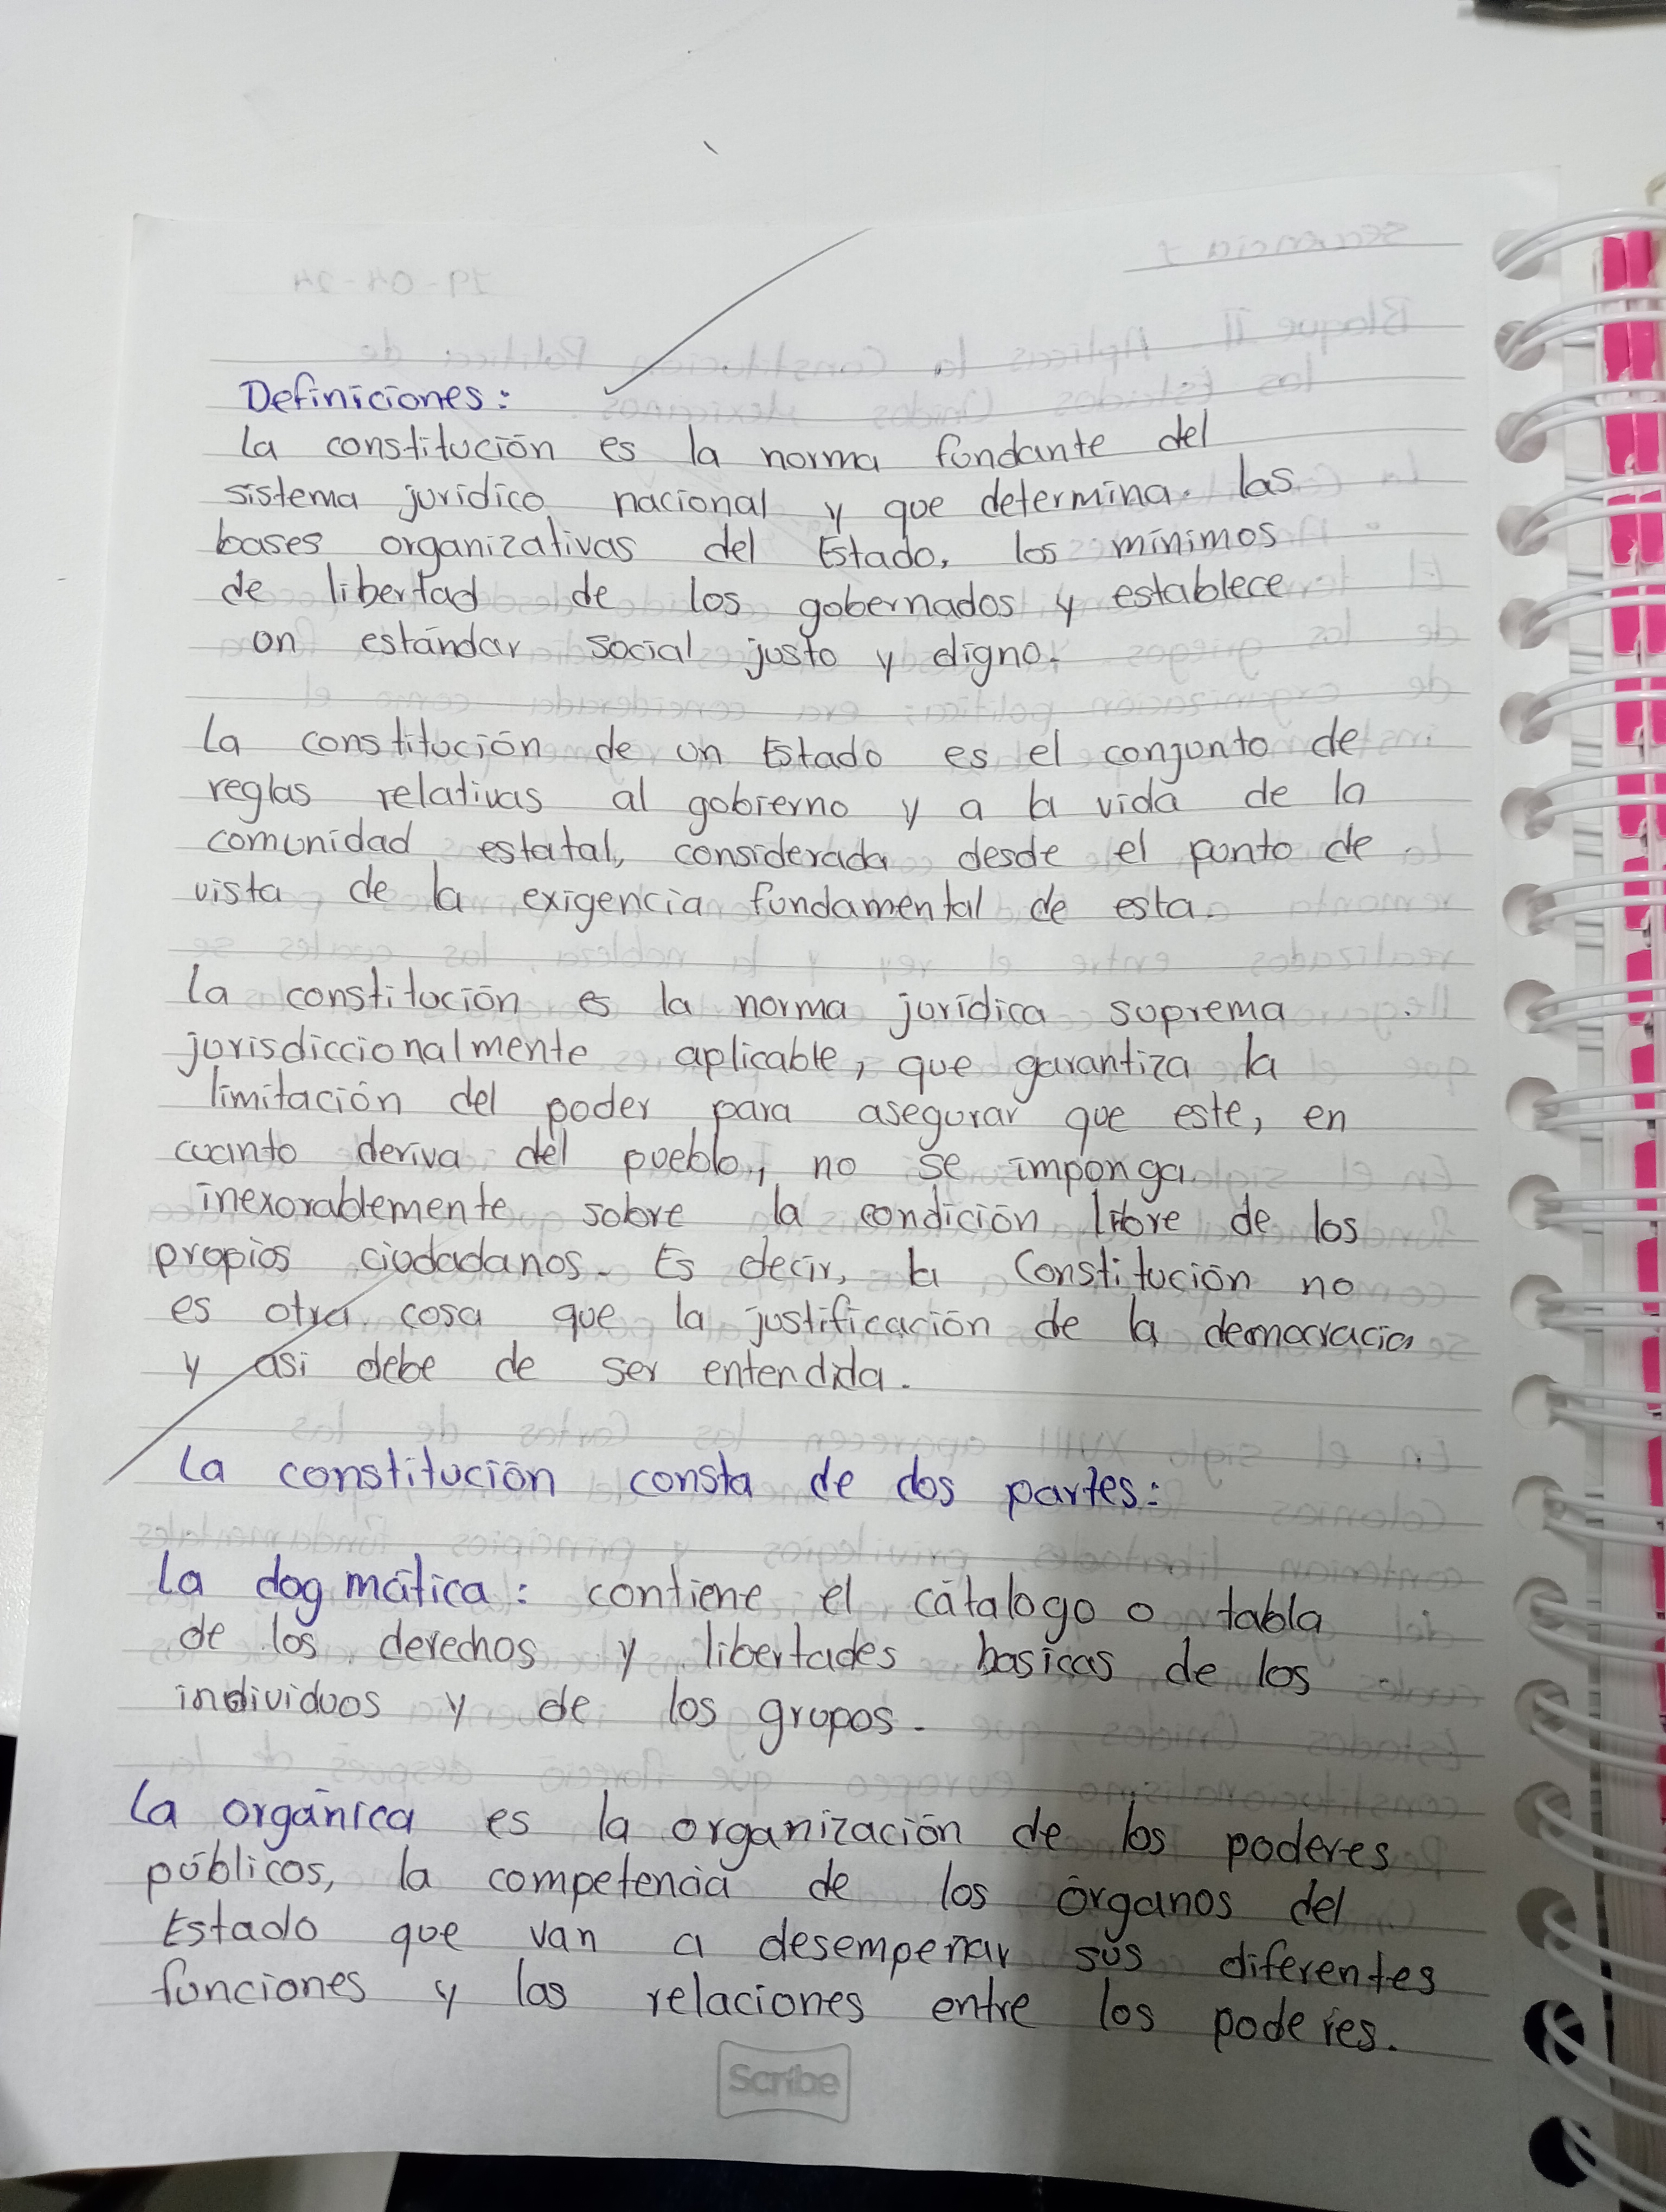 Definiciones:
La constitución es la norma fundante del
sistema jurídico nacional y que determina las
bases organizativas del Estado, los mínimos
de libertad de los gobernados y establece
un estándar social justo y digno.
La constitución de un Estado es el conjunto de
reglas relativas al gobierno y a la vida de la
comunidad estatal, considerada desde el punto de
vista de la exigencia fundamental de esta.
La constitución es la norma jurídica suprema
jurisdiccionalmente aplicable, que garantiza la
limitación del poder para asegurar que este, en
cuanto deriva del pueblo, no se imponga
inexorablemente sobre la condición libre de los
propios ciudadanos. Es decir, la Constitución no
es otra cosa que la justificación de la democracia
y asi debe de ser entendida.
La constitución consta de dos partes:
La dogmática: contiene el cátalogo o tabla
de los derechos y libertades basicas de los
individuos y de los grupos.
La orgánica es la organización de los poderes
públicos, la competencia de los órganos del
Estado que van a desempeñar sus diferentes
funciones y las relaciones entre los poderes.
Scribe